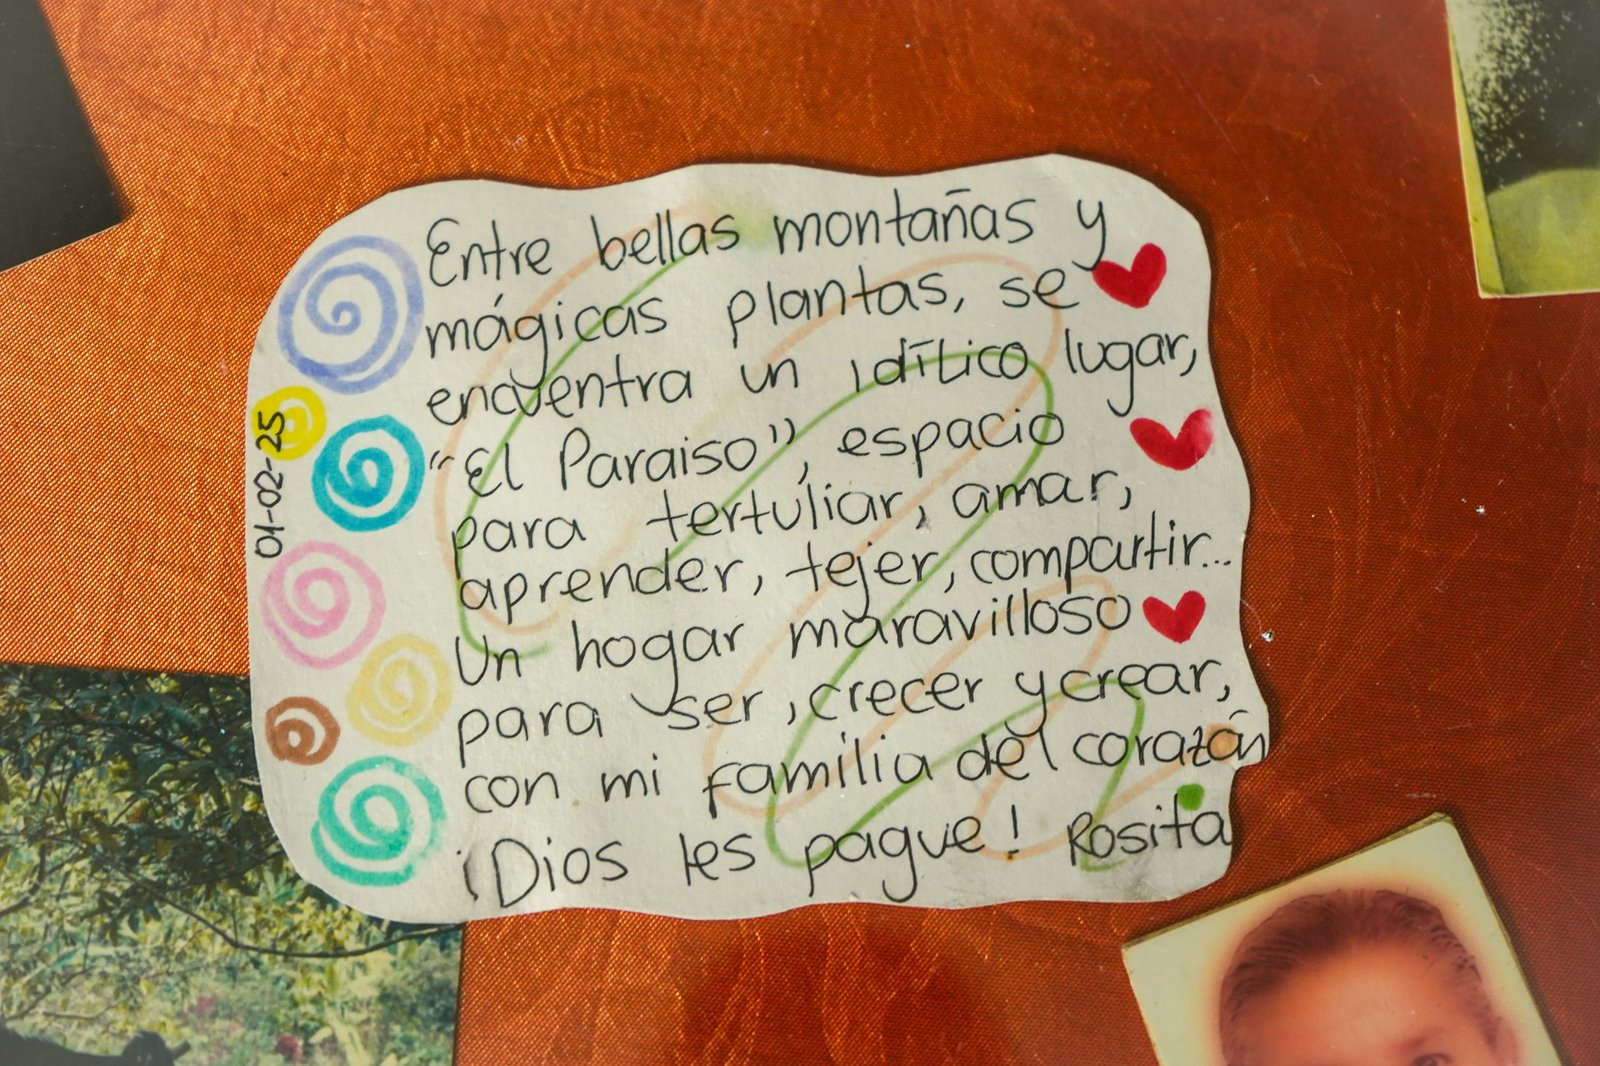 Entre bellas montañas y
mágicas plantas, se
encuentra un idílico lugar,
"El Paraiso", espacio
para tertuliar, amar,
aprender, tejer, compartir...
Un hogar maravilloso
para ser, crecer y crear,
con mi familia del corazón
¡Dios les pague! Rosita
01-02-25